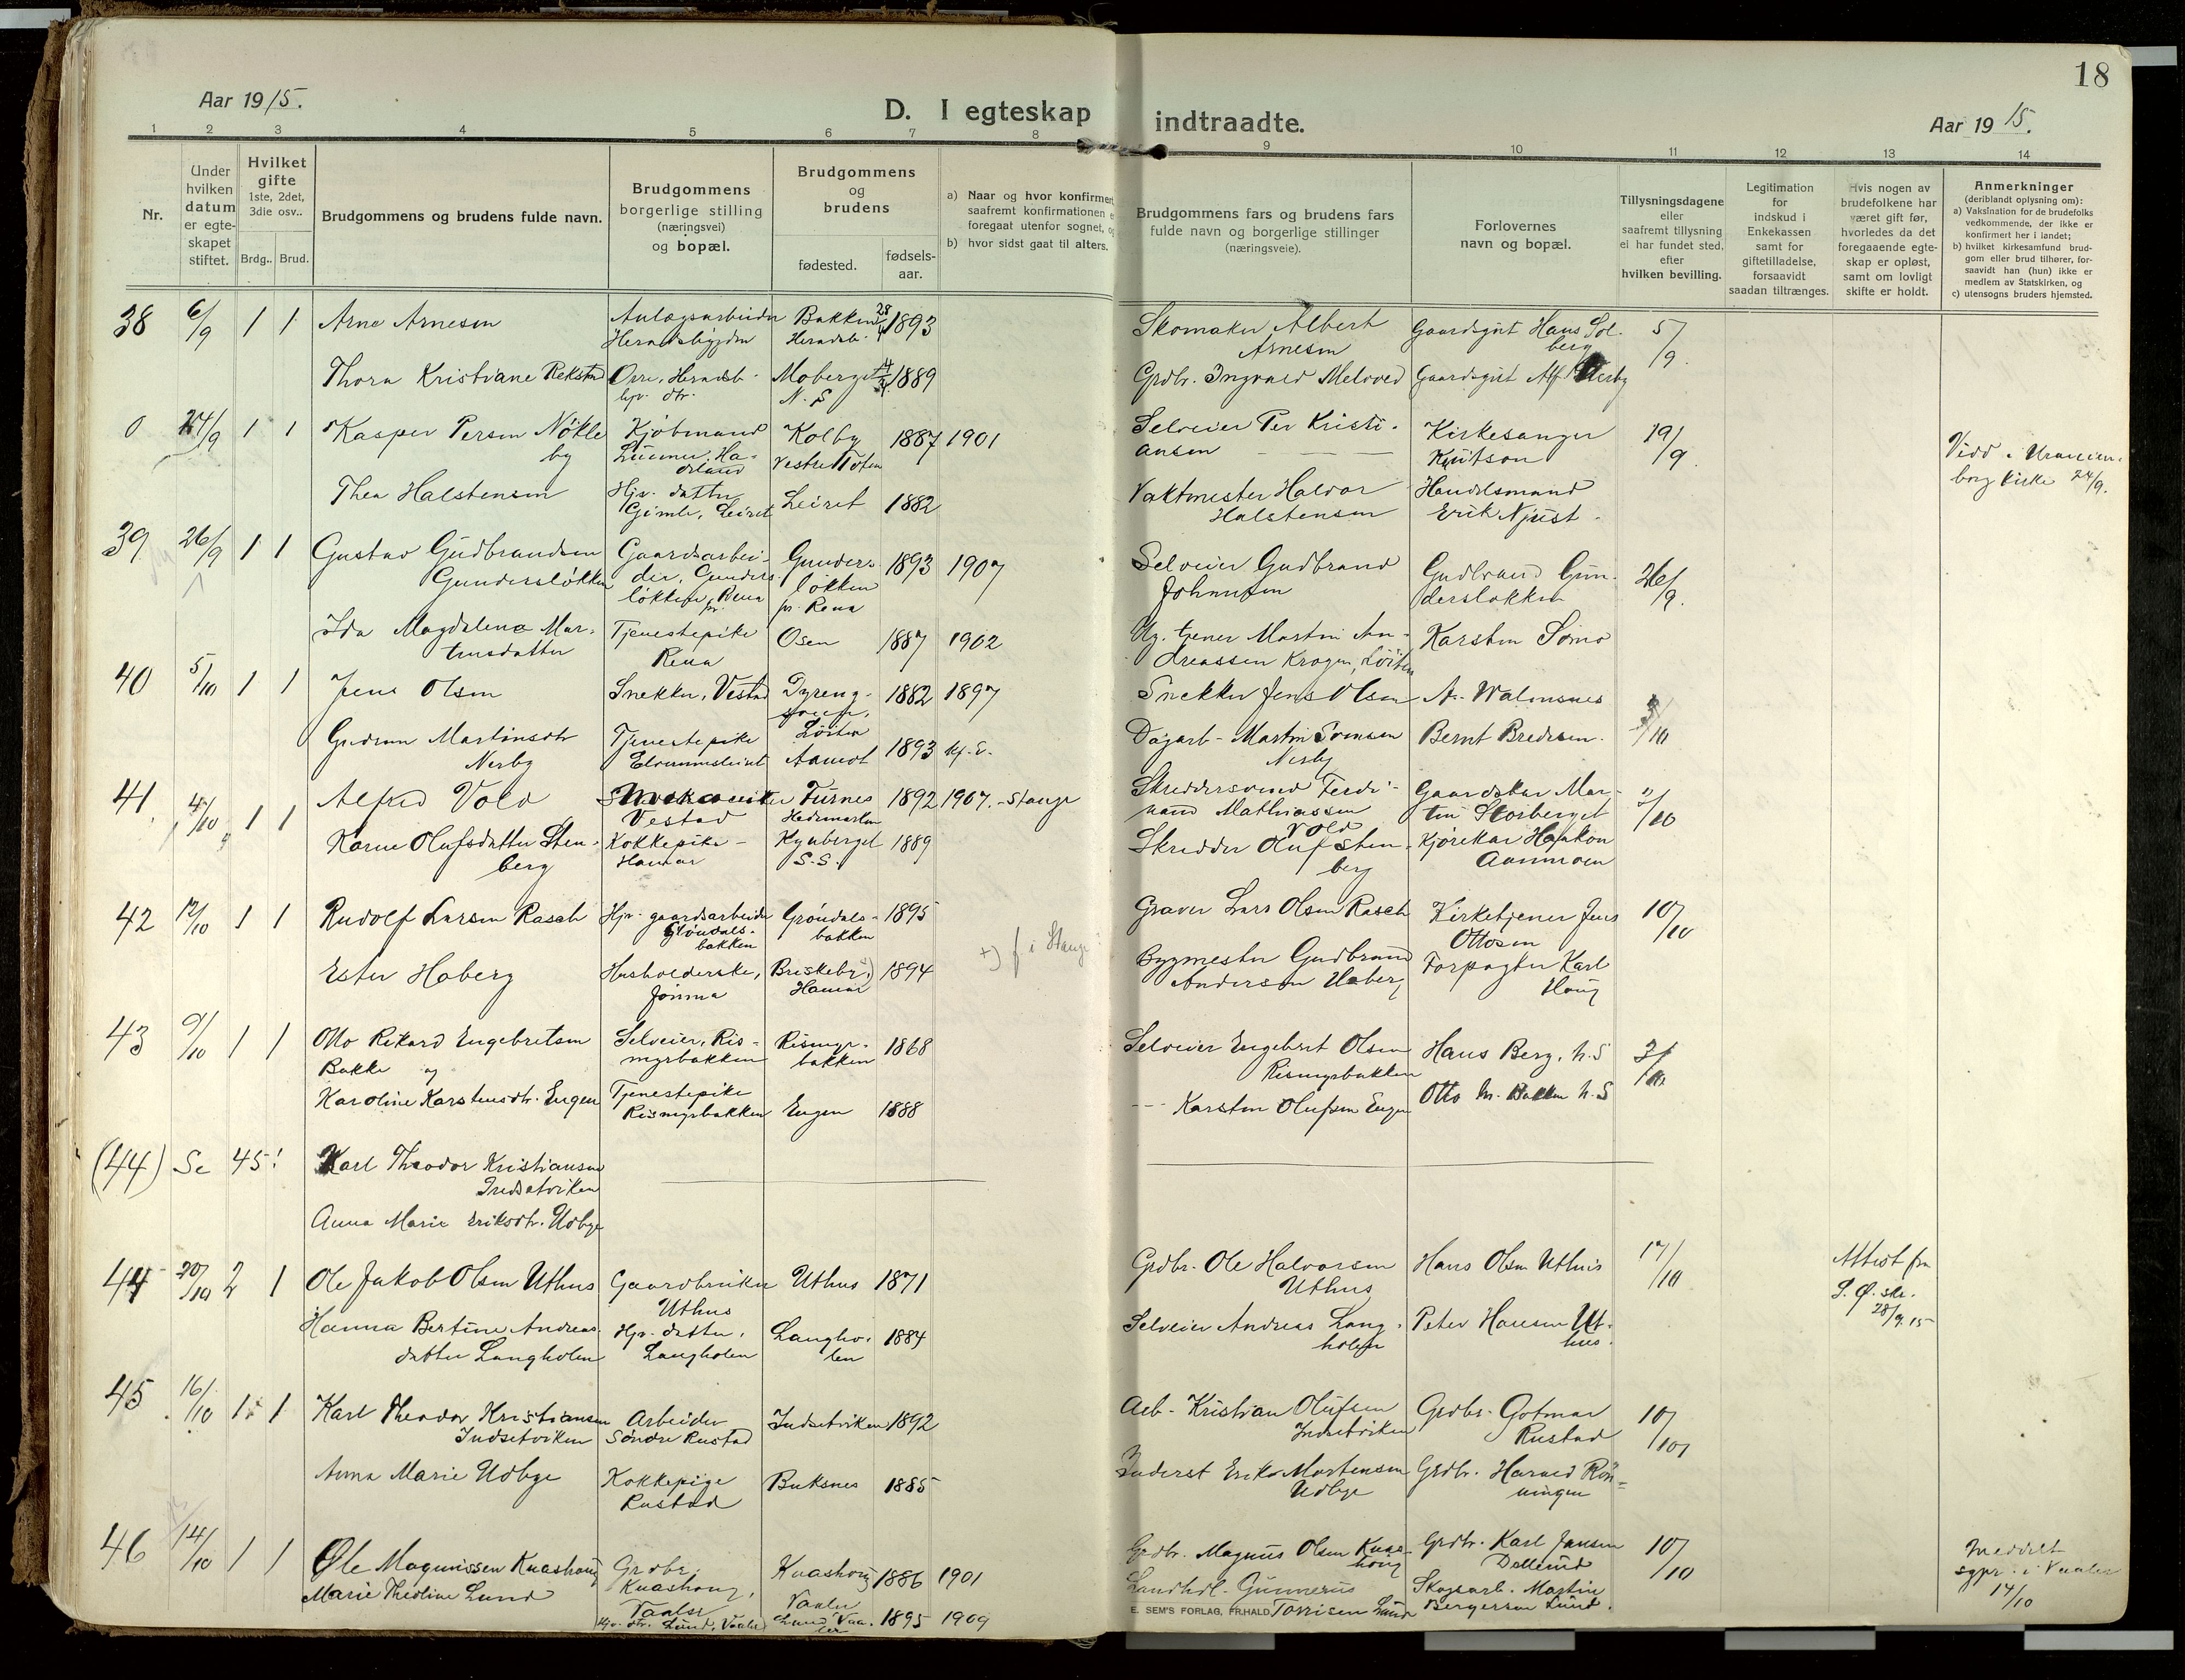 18
Aar 1915.
D. I egteskap indtraadte.
Aar 1915.
1 2 3 4 5 6 7 8 9 10 11 12 13 14
Nr.
Under hvilken datum er egte-skapet stiftet.
Hvilket gifte 1ste, 2det, 3die osv..
Brdg.. Brud.
Brudgommens og brudens fulde navn.
Brudgommens borgerlige stilling (næringsvei) og bopæl.
Brudgommens og brudens
fødested.
fødsels-aar.
a) Naar og hvor konfirmert
saafremt konfirmationen
foregaat utenfor sognet,
b) hvor sidst gaat til alters.
Brudgommens fars og brudens fars
fulde navn og borgerlige stillinger
(næringsveie).
Forlovernes
navn og bopæl.
Tillysningsdagene
eller
saafremt tillysning
ei har fundet sted,
efter
hvilken bevilling.
Legitimation
for
indskud i
Enkekassen
samt for
giftetilladelse,
forsaavidt
saadan tiltrænges.
Hvis nogen av
brudefolkene har
været gift før,
hvorledes da det
foregaaende egte-
skap er opløst,
samt om lovligt
skifte er holdt.
Anmerkninger
(deriblandt oplysning om):
a) Vaksination for de brudefolks
vedkommende, der ikke er
konfirmert her i landet;
b) hvilket kirkesamfund brud-
gom eller brud tilhører, for-
saavidt han (hun) ikke er
medlem av Statskirken, og
c) utensogns bruders hjemsted.
38 6/9 1 1 Arne Arnesen
Anlægsarbeider
Heradsbygden
Bakken
Heradsb.
1893
Skomaker Albert
Arnesen
Gaardsgut Hans Sol-
berg
5/9.
Thora Kristiane Rekstad
Opr. Heradsb.
hjv. dtr.
Moberget
N. S
1889
Grdbr. Ingvald Melvold
Gaardsgut Alf
0 24/9 1 1 Kasper Persen Nökle
by
Kjöbmand
Lunner, Ha-
deland
Kolby
Vestre Toten
1887 1901
Selveier Per Kristi-
ansen
Kirkesanger
Knutson
19/9.
Vidd i Uranien-
borg kirke 24/9.
Thea Halstensen
Hjv. datter
Gimle, Leiret
Leiret 1882
Vaktmester Halvor
Halstensen
Handelsmand
Erik Njust.
39 26/9 1 1 Gustav Gudbrandsen
Gundersløkken
Gaardsarbei-
der, Gunders
løkken, pr. Rena
Gunders
løkken
pr. Rena
1893 1907
Selveier Gudbrand
Johnsen
Gudbrand Gun-
derslökken
26/9.
Ida Magdalene Mar-
tinsdatter
Tjenestepike
Rena
Osen 1887 1902
Ug. tjener Martin An-
dreassen Krogen, Löiten
Karsten Sömo
40 5/10 1 1 Jens Olsen
Snekker, Vestad
Löiten
1882 1897
Snekker Jens Olsen
A. Walmsnes
3/10
Gudrun Martinsdtr
Nesby
Tjenestepike
Elverumsleiret
Aamot 1893
Dagarb. Martin Svensen
Nesby
Bernt Bredesen.
41. 4/10 1 1 Alfred Vold
Vestad
Furnes
Hedemarken
1892 1907. - Stange
Skreddersvend Ferdi-
nand Mathiassen
Vold
Gaardskar Mar-
tin Storberget
3/10
Karne Olufsdatter Sten-
berg
Kokkepike -
Hamar
Kynberget
S.S.
1889
Skredder Oluf Sten-
berg
Kjørekar Haakon
Aanmoen
42 12/10 1 1 Rudolf Larsen Rasch
Hjv. gaardsarbeider
Gröndals-
bakken
Gröndals-
bakken
1895
Graver Lars Olsen Rasch
Kirketjener Jens
Ottosen
10/10
+) f i Stange
Ester Haberg
Husholderske,
Jömna
Briskeby +)
Hamar
1894
Bygmester Gudbrand
Andersen Haberg
Forpagter Karl
Haug
43 9/10 1 1 Otto Rikard Engebretsen
Bakke og
Selveier, Ris-
myrbakken
Rismyr-
bakken
1868
Selveier Engebret Olsen
Rismyrbakken
Hans Berg, N.S
3/10
Karoline Karstensdtr. Engen
Tjenestepike
Rismyrbakken
Engen 1888
--- Karsten Olufsen Engen
Otto M. Bakken N.S
(44) Se 45! Karl Theodor Kristiansen
Indsetviken
Anna Marie Eriksdtr. Udbye
44 20/10 2 1 Ole Jakob Olsen Uthus
Gaardbruker
Uthus
Uthus 1871
Grdbr. Ole Halvorsen
Uthus
Hans Olsen Uthus
17/10
Attest fra
S. Ø. skr.
28/9.15
Hanna Bertine Andreas-
datter Langholen
Hjv. datter,
Langholen
Langho-
len
1884
Selveier Andreas Lang-
holen
Peter Hansen Ut-
hus.
45 16/10 1 1 Karl Theodor Kristiansen
Indsetviken
Arbeider
Söndre Rustad
Indsetviken 1892
Arb. Kristian Olufsen
Indsetviken
Grdbr. Gotmar
Rustad
10/10
Anna Marie Udbye
Kokkepige
Rustad
Buksnes 1885
Inderst Erik Mortensen
Udbye
Grdbr. Harald Rön-
ningen
46 14/10 1 1 Ole Magnussen Knashaug
Grdbr.
Knashaug,
Vaaler
Knashaug
Vaaler
1886 1901
Grdbr. Magnus Olsen Knas-
haug
Grdbr. Karl Jansen
Dellerud
10/10
Meddelt
sgpr. i Vaaler
14/10
Marie Theoline Lund
Hjv. dtr. Lund, Vaaler
Lund Vaa-
ler
1895 1909
Landhdl. Gunnerus
Torrisen Lund
Skogsarb. Martin
Bergersen Lund.
E. SEM'S FORLAG, FR.HALD